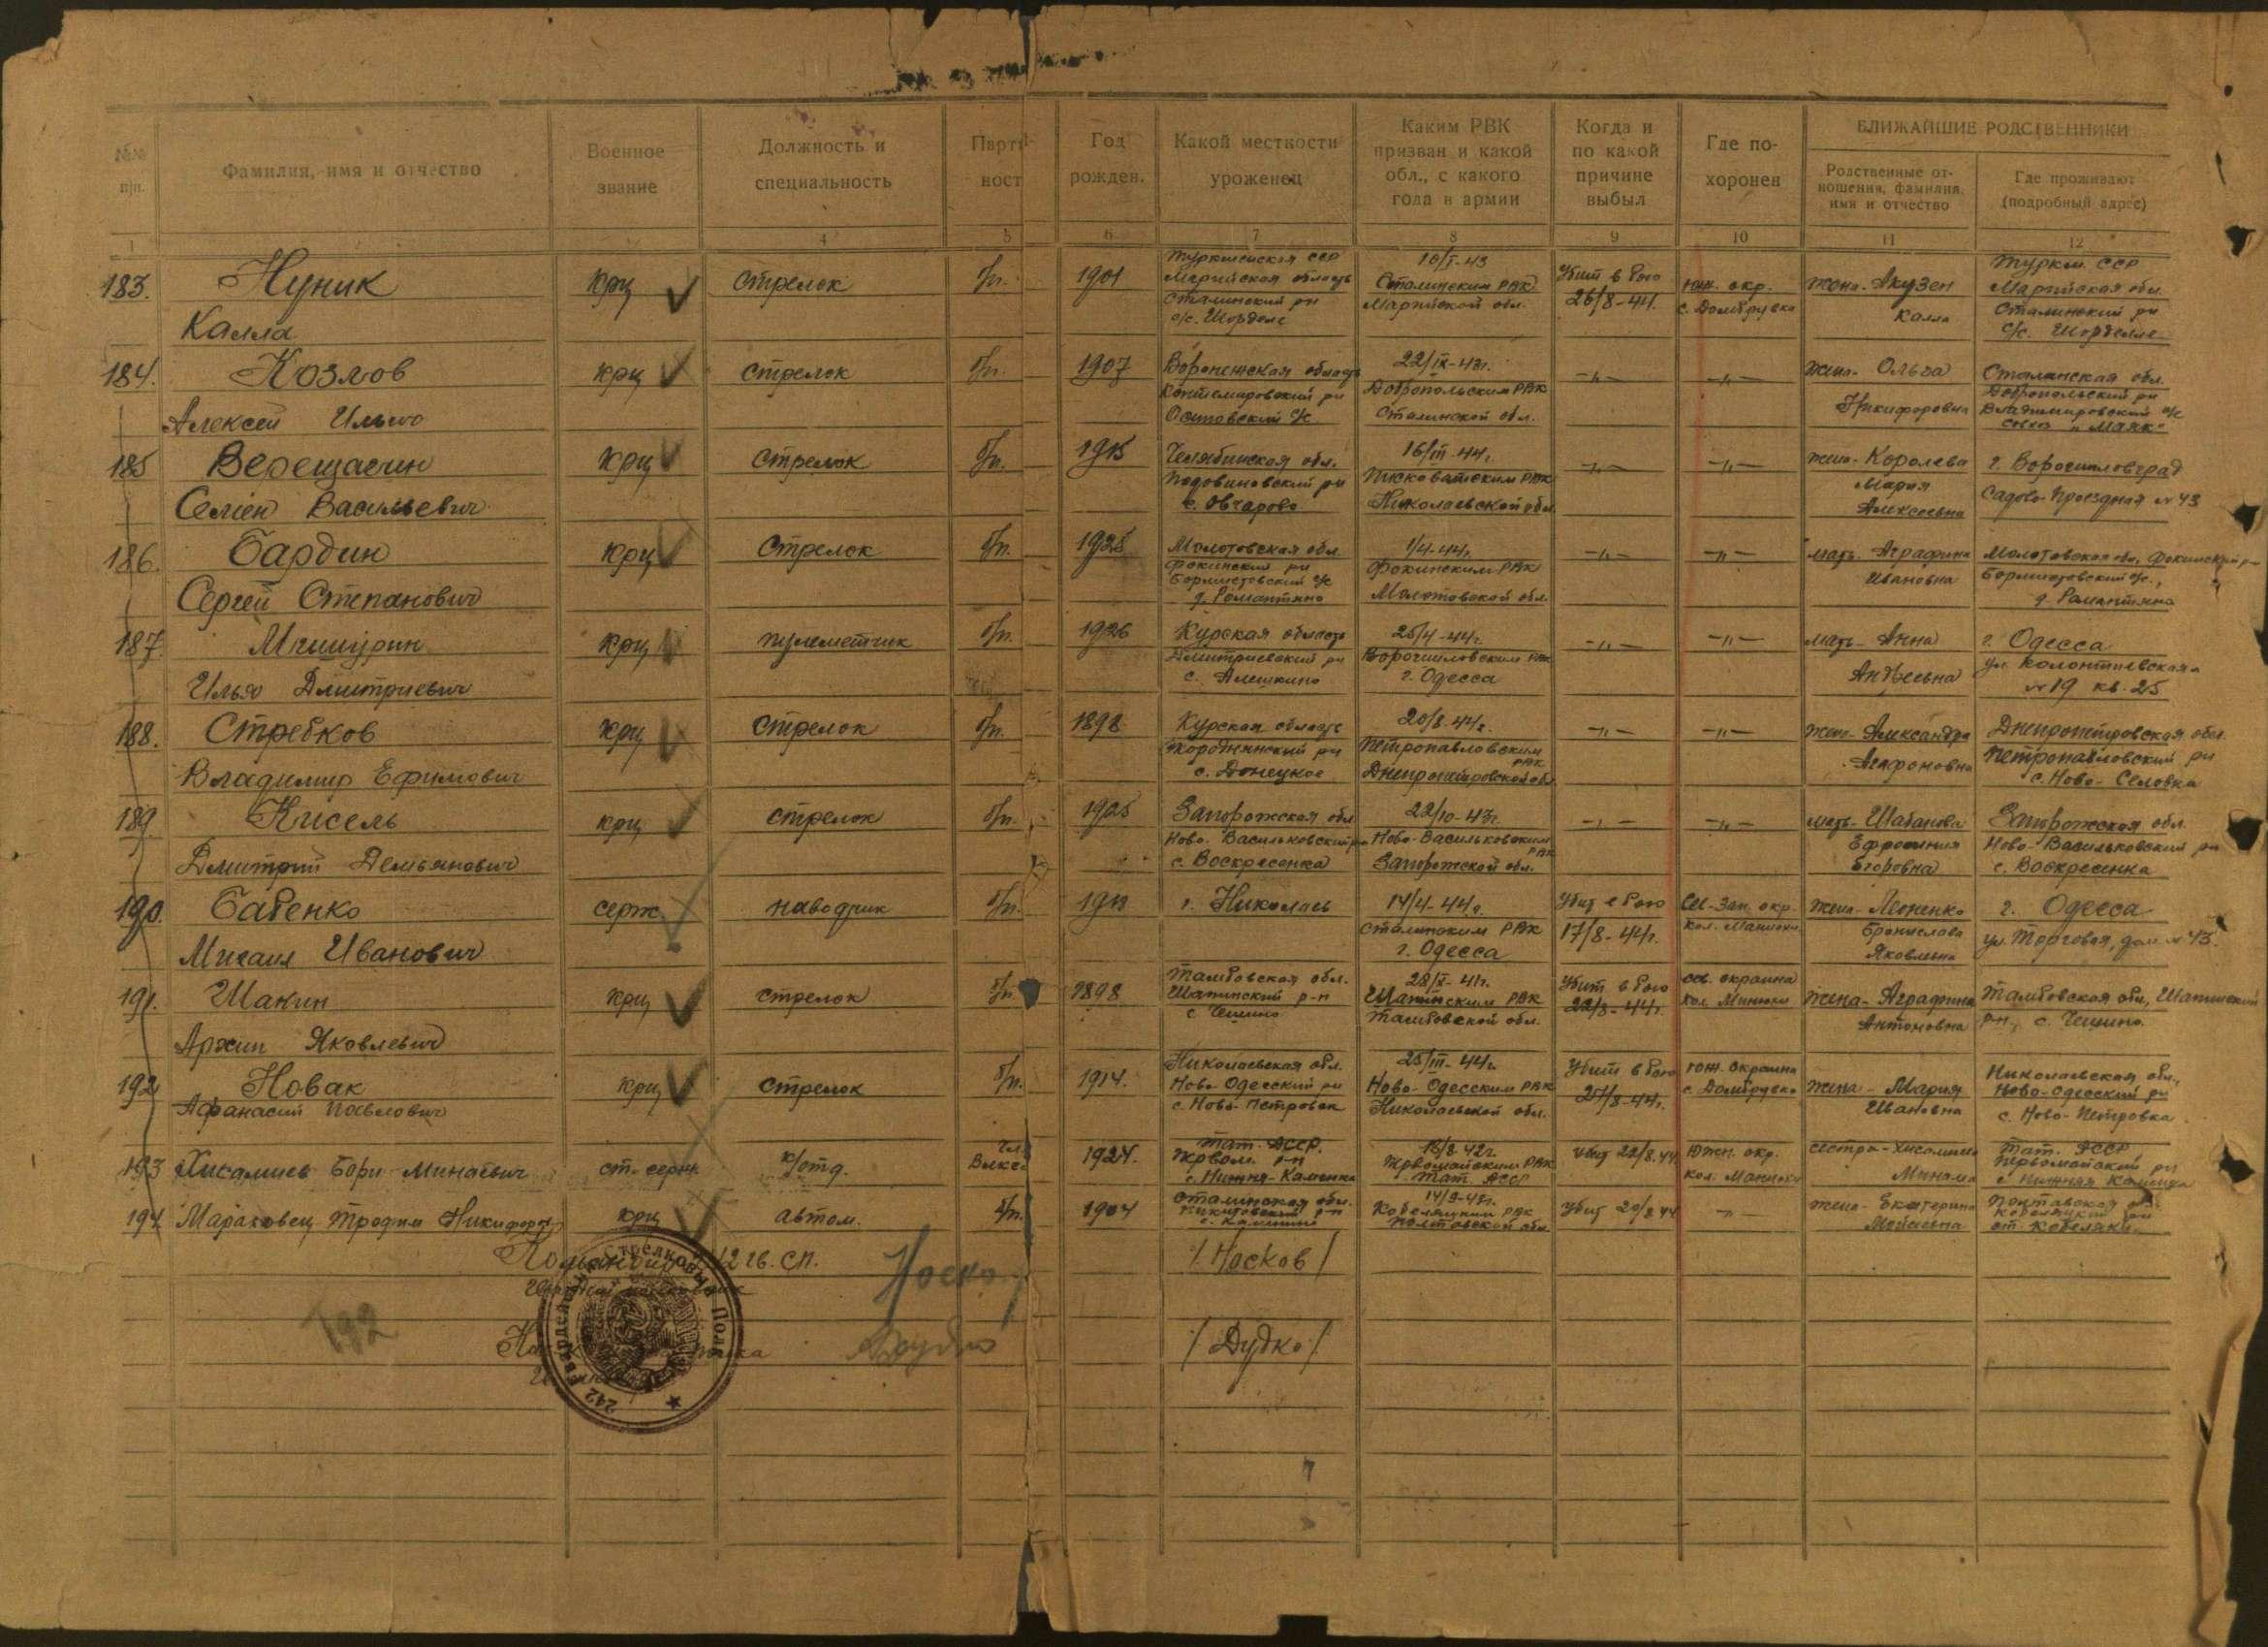 №№ п/п.
Фамилия, имя и отчество
Военное звание
Должность и специальность
Парт ност
Год рожден.
Какой местности уроженец
Каким РВК призван и какой обл., с какого года в армии
Когда и по какой причине выбыл
Где по- хоронен
БЛИЖАЙШИЕ РОДСТВЕННИКИ
Родственные от- ношения, фамилия, имя и отчество
Где проживают (подробный адрес)
1 4 5 6 7 8 9 10 11 12
183. Нуник Калла
крц стрелок б/п. 1901
Туркменская ССР Марийская область Сталинский рн с/с.
10/I-43 Сталинским РВК Марийской обл.
Убит в бою 26/8-44.
юж. окр. с. Домбрувка
жена-Акузен Калла
Туркм. ССР Марийская обл. Сталинский рн с/с.
184. Козлов Алексей Ильич
крц стрелок б/п. 1907
Воронежская область Контемировский рн Осиповский с/с.
22/IX-43г. Добропольским РВК Сталинской обл.
-"- -"-
жена- Ольга Никифоровна
Сталинская обл. Добропольский рн Владимировский с/с совхоз "Маяк"
185 Верещагин Семен Васильевич
крц стрелок б/п. 1915
Челябинская обл. Подовиновский рн с. Овчарово
16/III-44г. Песковатским РВК Николаевской обл
-"- -"-
жена-Королева Мария Алексеевна
г. Ворошиловград Садово-Проездная №43
186. Бардин Сергей Степанович
крц стрелок б/п. 1925
Молотовская обл Фокинский рн с/с д. Романтино
1/4-44г. Фокинским РВК Молотовской обл.
-"- -"-
мать-Аграфина Ивановна
Молотовская обл, Фокинский рн с/с., д. Романтина
187. Мишурин Илья Дмитриевич
крц пулеметчик б/п. 1926
Курская область Дмитриевский рн с. Алешкино
25/4-44г. Ворошиловским РВК г. Одесса
-"- -"-
мать-Анна Андреевна
г. Одесса ул. Колонтаевская №19 кв. 25
188. Стребков Владимир Ефимович
крц стрелок б/п. 1898
Курская область Скороднянский рн с. Донецкое
20/8-44г. Петропавловским РВК Днепропетровской обл
-"- -"-
жена-Александра Агафоновна
Днепропетровская обл. Петропавловский рн с. Ново-Селовка
189 Кисель Дмитрий Демьянович
крц стрелок б/п. 1925
Запорожская обл Ново-Васильковский рн с. Воскресенка
22/10-43г. Ново-Васильковским РВК Запорожской обл.
-"- -"-
мать-Шабанова Ефросиния Егоровна
Запорожская обл. Ново-Васильковский рн с. Воскресенка
190. Бабенко Михаил Иванович
серж. наводчик б/п.
г. Николаев
14/4-44г. Сталинским РВК г. Одесса
Убит в бою 17/8-44г.
Се-зап. окр. кол.
жена-Леоненко Бронислава Яковлевна
г. Одесса ул. Торговая, дом №43.
191. Шакин Яковлевич
крц стрелок б/п 1898
Тамбовская обл. Шапкинский р-н с Чешино
28/X-41г. Шапкинским РВК Тамбовской обл.
Убит в бою 22/8-44г.
сев. окраина кол.
жена-Аграфина Антоновна
Тамбовская обл, р-н, с. Чешино.
192 Новак Афанасий Павлович
крц стрелок б/п. 1914.
Николаевская обл. Ново-Одесский рн с. Ново-Петровск
25/III-44г. Ново-Одесским РВК Николаевской обл.
Убит в бою 27/8-44г.
юж. окраина с. Домбрувка
жена-Мария Ивановна
Николаевская обл., Ново-Одесский рн с. Ново-Петровка
193 Хисамиев Бори Минаевич
ст. серж к/отд. 1924.
Тат. АССР. Первом. р-н с. Нижня-Каменка
15/8-42г. Первомайским РВК Тат. АССР
убит 22/8.44
Южн. окр. кол.
сестра-Хисамиева
Тат. АССР Первомайский рн с Нижняя Каменка
194 Мараховец Трофим Никифоров
крц автом. б/п. 1904
Сталинская обл. Никитовский р-н с. Калинино
14/9-43г. Кобеляцким РВК Полтавской обл.
Убит 20/8 44
-"-
жена-Екатерина Моисеевна
Полтавская обл Кобеляцкий рн ст. Кобеляки
Командир 242 гв. сп. Носко /Носков/
Дудко /Дудко/
192
242 Гвардейский Стрелковый Полк